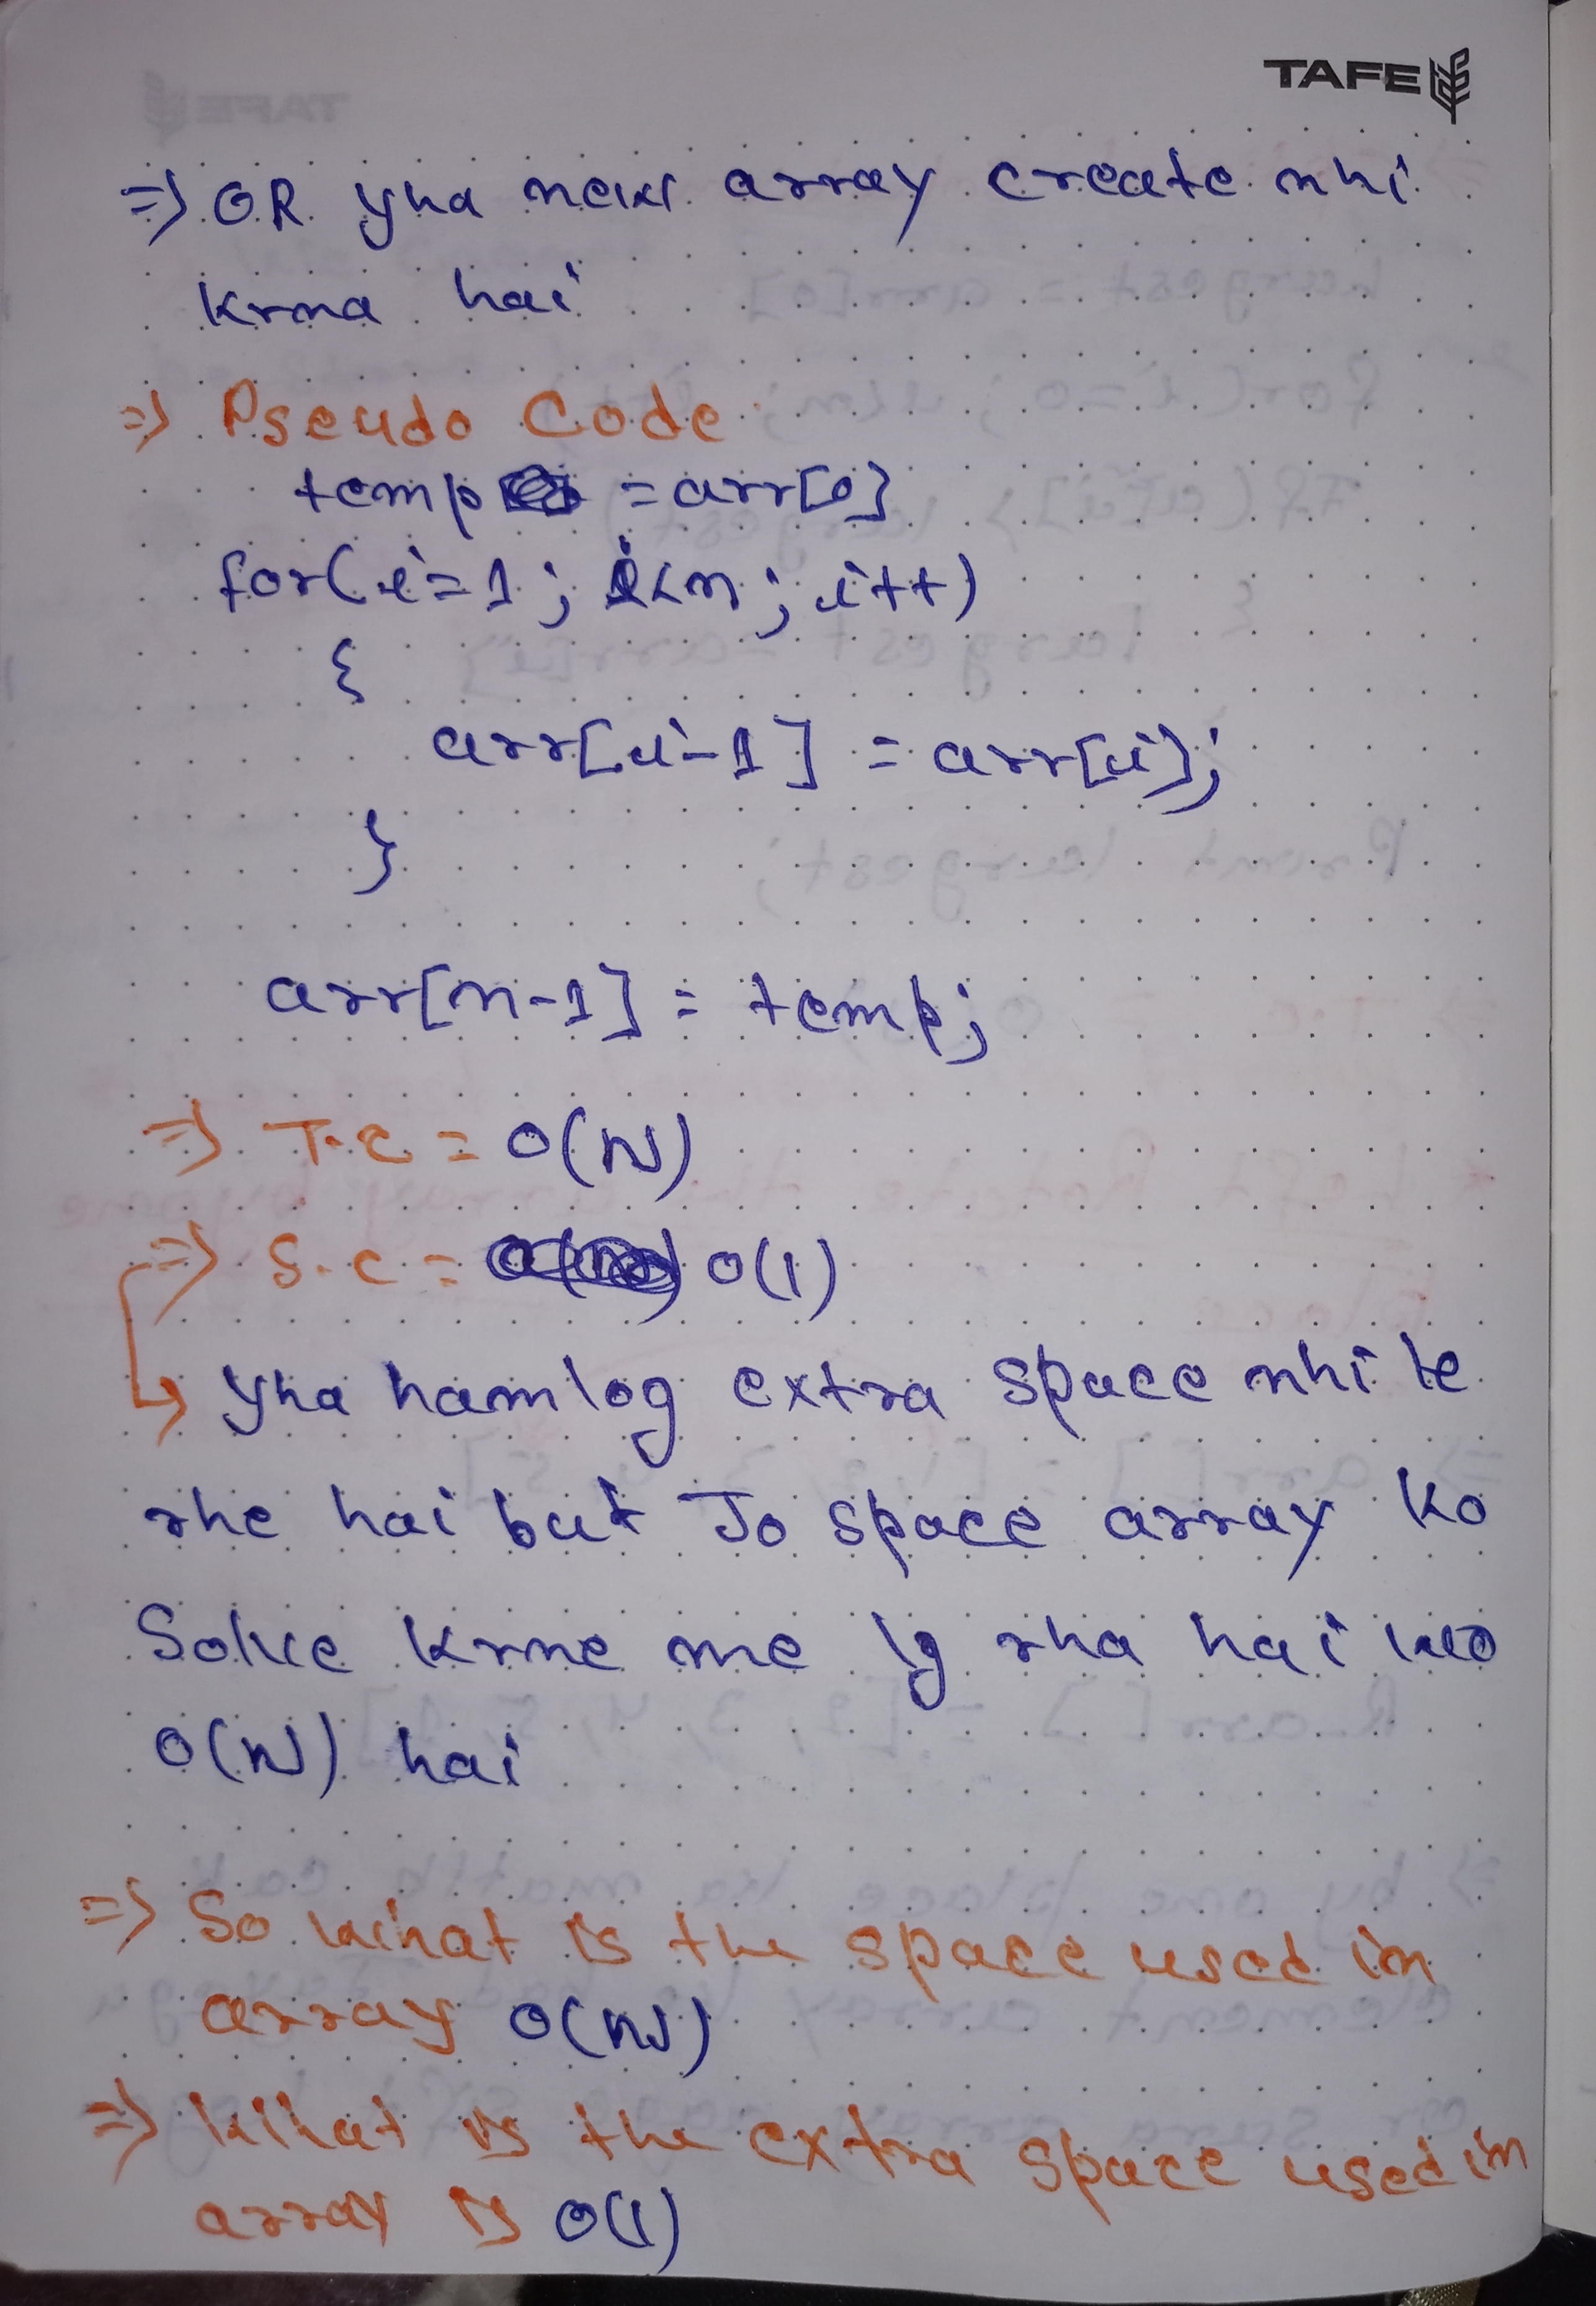 TAFE
=> OR yha new array create nhi
krna hai
=> Pseudo Code
temp = arr[0]
for(i=1; i<n; i++)
{
arr[i-1] = arr[i];
}
arr[n-1] = temp;
=> T.C = O(N)
=> S.C = O(1)
yha hamlog extra space nhi le
rhe hai but Jo space array ko
Solve krne me lg rha hai wo
O(N) hai
=> So what is the space used in
array O(N)
=> What is the extra space used in
array is O(1)